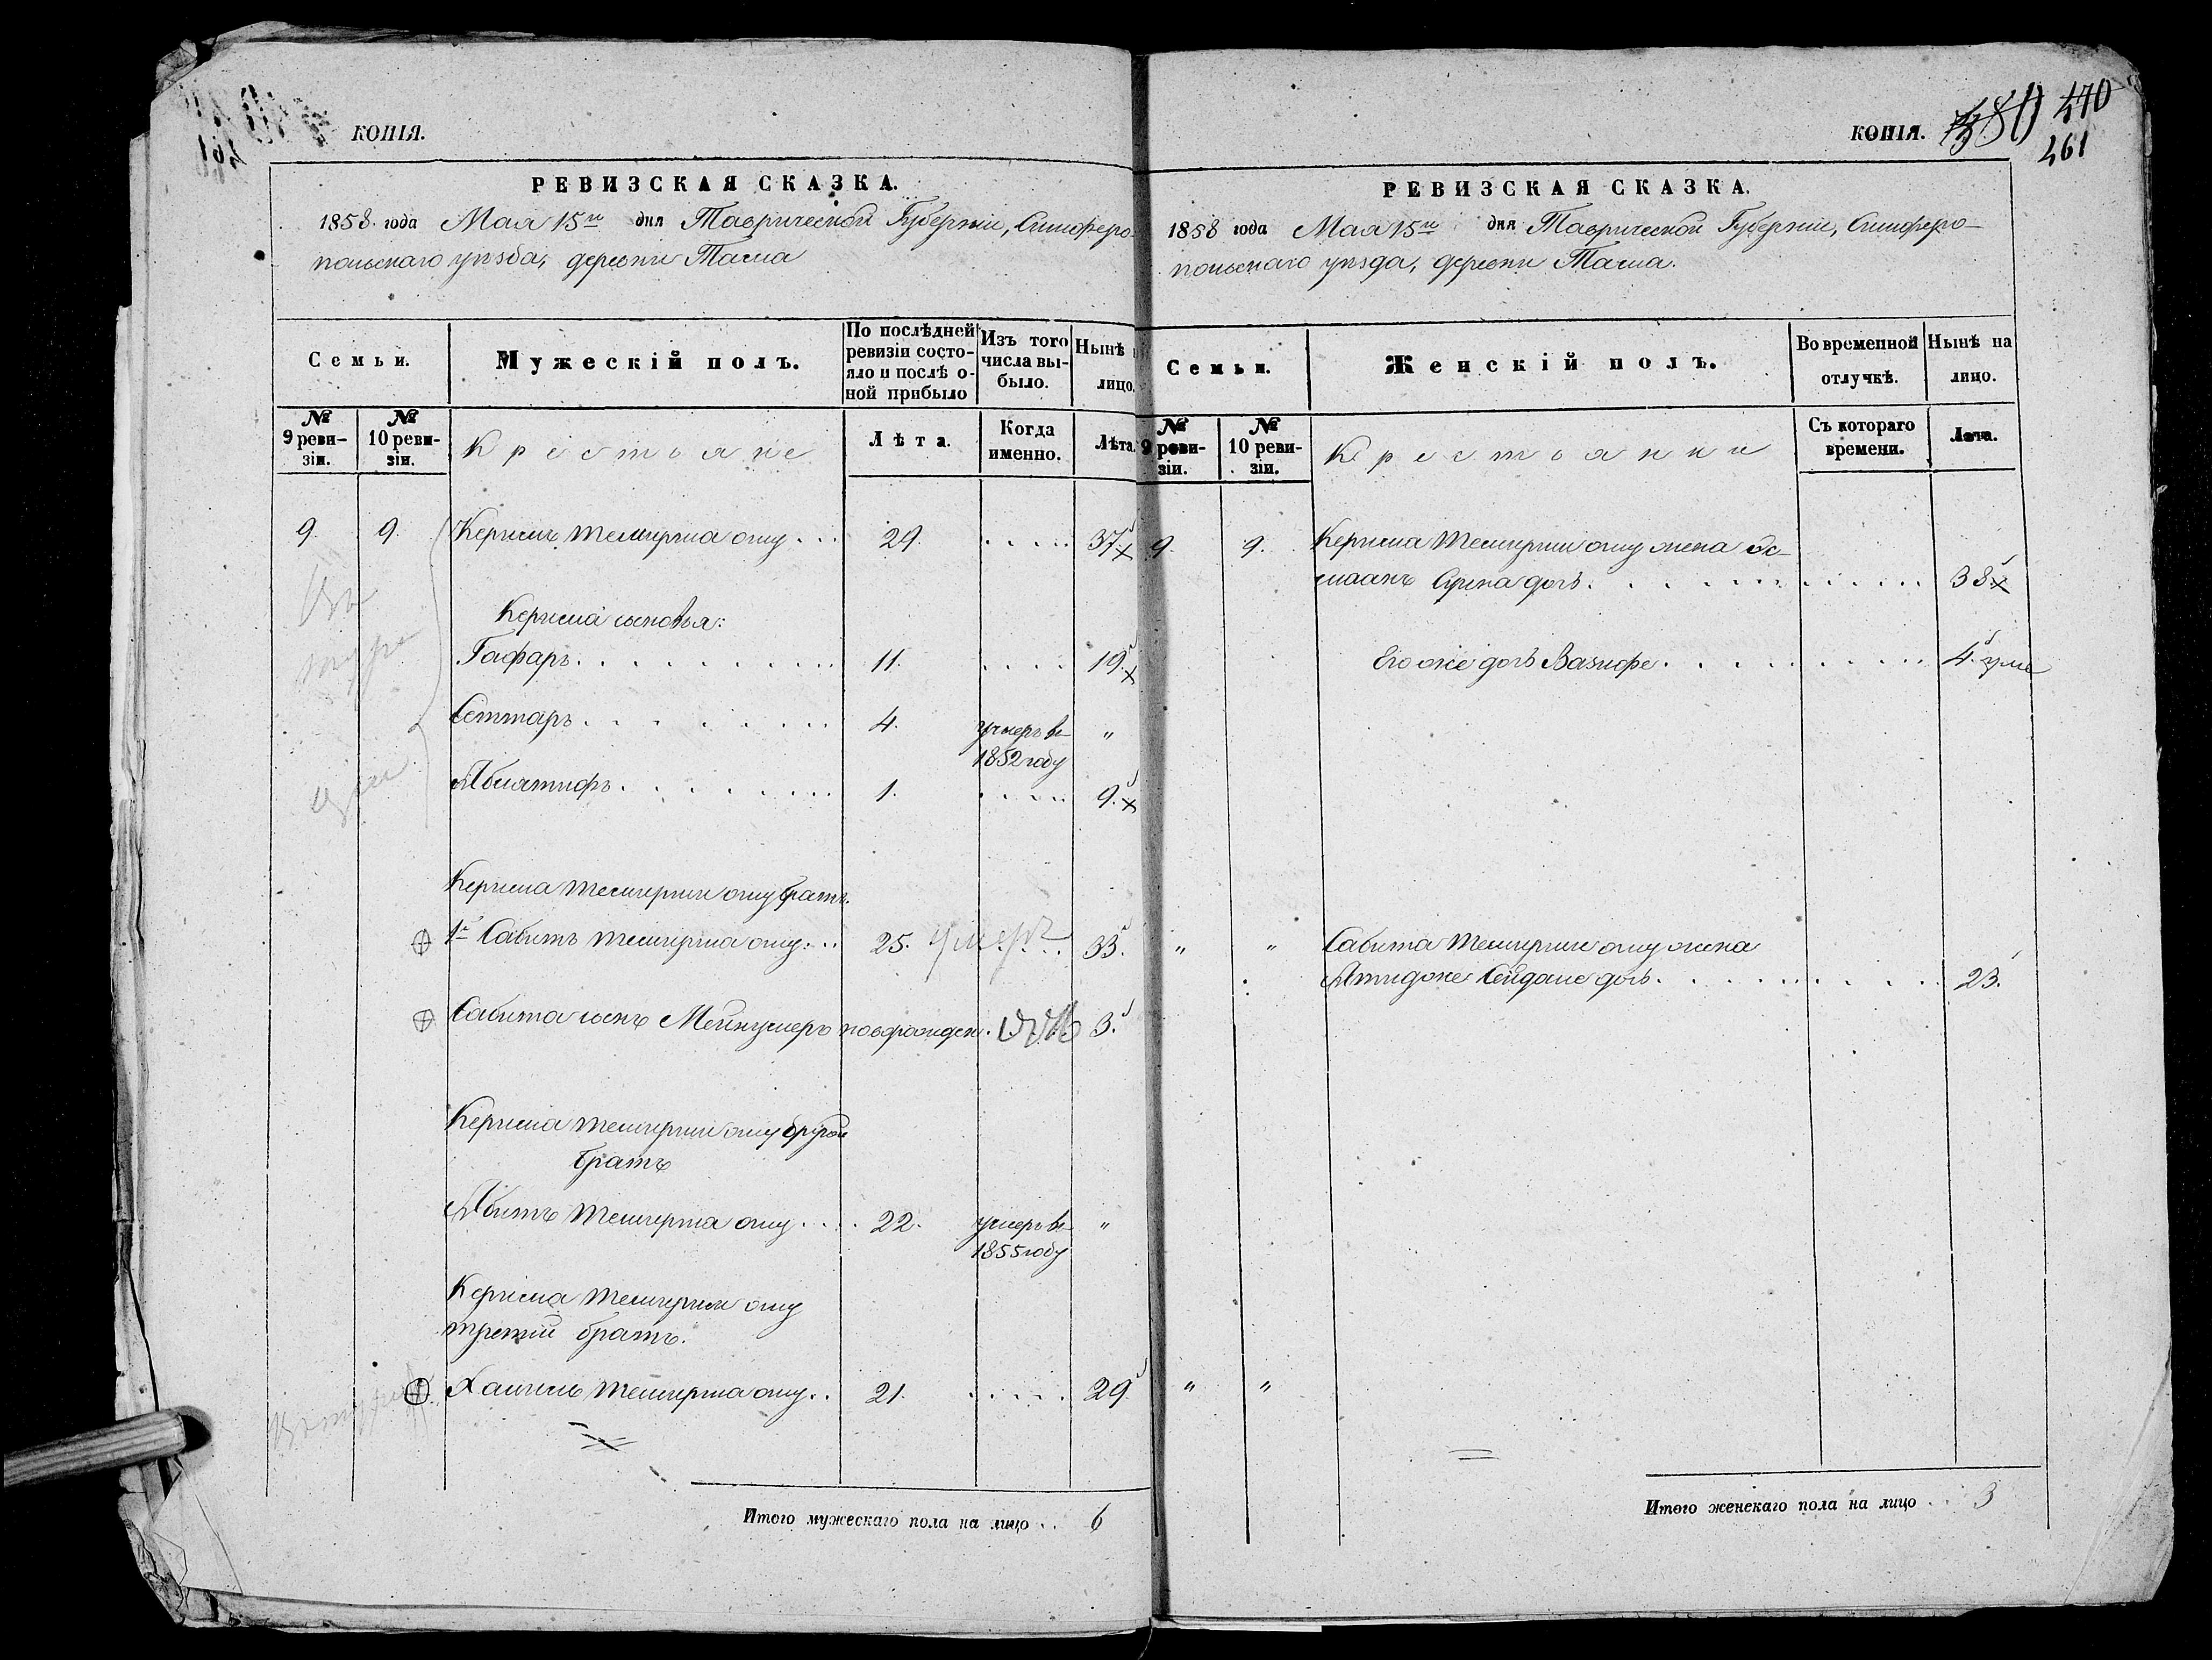 КОПІЯ.
РЕВИЗСКАЯ СКАЗКА.
1858. года Мая 15го дня Таврической Губерніи, Симферо-
польскаго уѣзда, деревни Ташa
Семьи.
Мужескій полъ.
По послѣдней ревизіи состо-яло и послѣ о-ной прибыло
Изъ того числа вы-было.
Нынѣ
лицо.
№ 9 реви-зіи.
№ 10 реви-зіи.
Крестьяне
Лѣта.
Когда именно.
Лѣта.
9. 9. Керимъ Темирша оглу . . . 29. . . . . 37
Керима сыновья:
Гафаръ . . . . . . . . 11. . . . . 19.
Сеттаръ . . . . . . . . 4. умеръ въ 1852 году "
Абилтифъ . . . . . . . 1. . . . . 9.
Керима Темирши оглу братъ.
1й Сабитъ Темирша оглу . . . 25. умеръ 33.
Сабита сынъ новорожден. 3.
Керима Темирши оглу другой
братъ
Абитъ Темирша оглу . . . . 22. умеръ въ 1855 году "
Керима Темирши оглу
третій братъ.
Халилъ Темирша оглу . . 21. . . . . 29.
Итого мужескаго пола на лицо . . 6
КОПІЯ. 470
461
РЕВИЗСКАЯ СКАЗКА.
1858 года Мая 15го дня Таврической Губерніи, Симферо-
польскаго уѣзда, деревни Ташa.
Семьи.
Женскій полъ.
Во временной отлучкѣ.
Нынѣ на лицо.
№ 9 реви-зіи.
№ 10 реви-зіи.
Крестьянки
Съ котораго времени.
Лѣта.
9. 9. Керима Темирши оглу жена
дочь . . . . . . . . . . 38.
Его же дочь Вазифе . . . . . . . . . 4.
" " Сабита Темирши оглу жена
дочь . . . . . . . . . 23.
" "
Итого женскаго пола на лицо . . 3